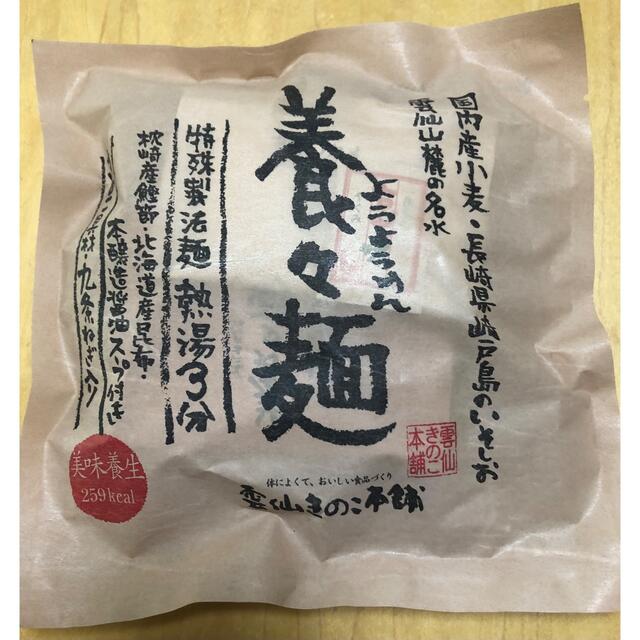 国内産小麦・長崎県崎戸島のいそしお
雲仙山麓の名水
養々麺
ようようめん
特殊製法麺 熱湯3分
枕崎産鰹節・北海道産昆布・
本醸造醤油スープ付き
材・九条ねぎ入り
美味養生
259kcal
雲仙
きのこ
本舗
体によくて、おいしい食品づくり
雲仙きのこ本舗